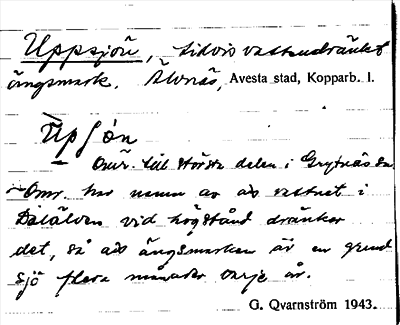 Uppsjön, tidvis vattendränkt
ängsmark. Älvnäs, Avesta stad, Kopparb. l.
Upsjön
Områ. till största delen i Grytnäs sn
Omr. har namn av att vattnet i
Dalälven vid högstånd dränker
det, så att ängsmarken är en grund
sjö flera månader varje år.
G. Qvarnström 1943.